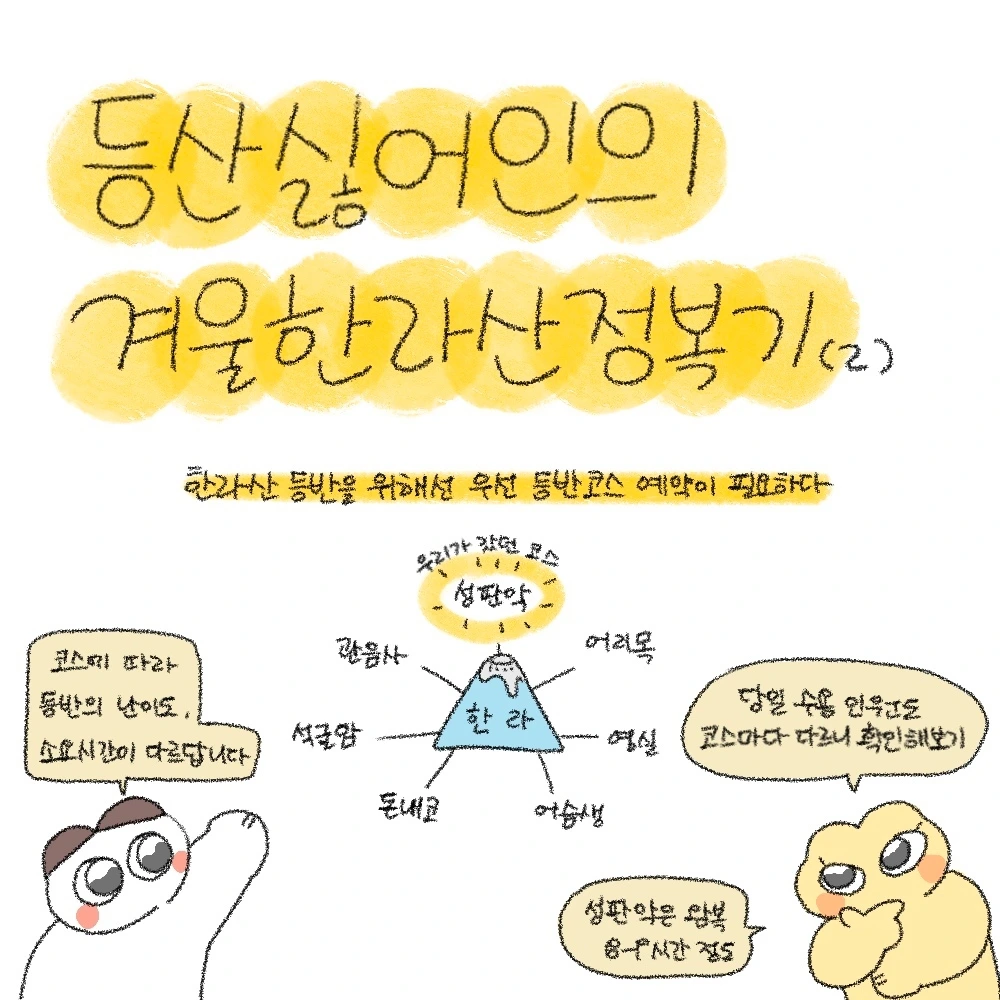 등산싫어인의
겨울한라산정복기(2)
한라산 등반을 위해선 우선 등반코스 예약이 필요하다
우리가 갔던 코스
성판악
관음사
어리목
한라
석굴암
영실
돈내코
어승생
코스에 따라
등반의 난이도,
소요시간이 다르답니다
당일 수용 인원도
코스마다 다르니 확인해보기
성판악은 왕복
8-9시간 정도